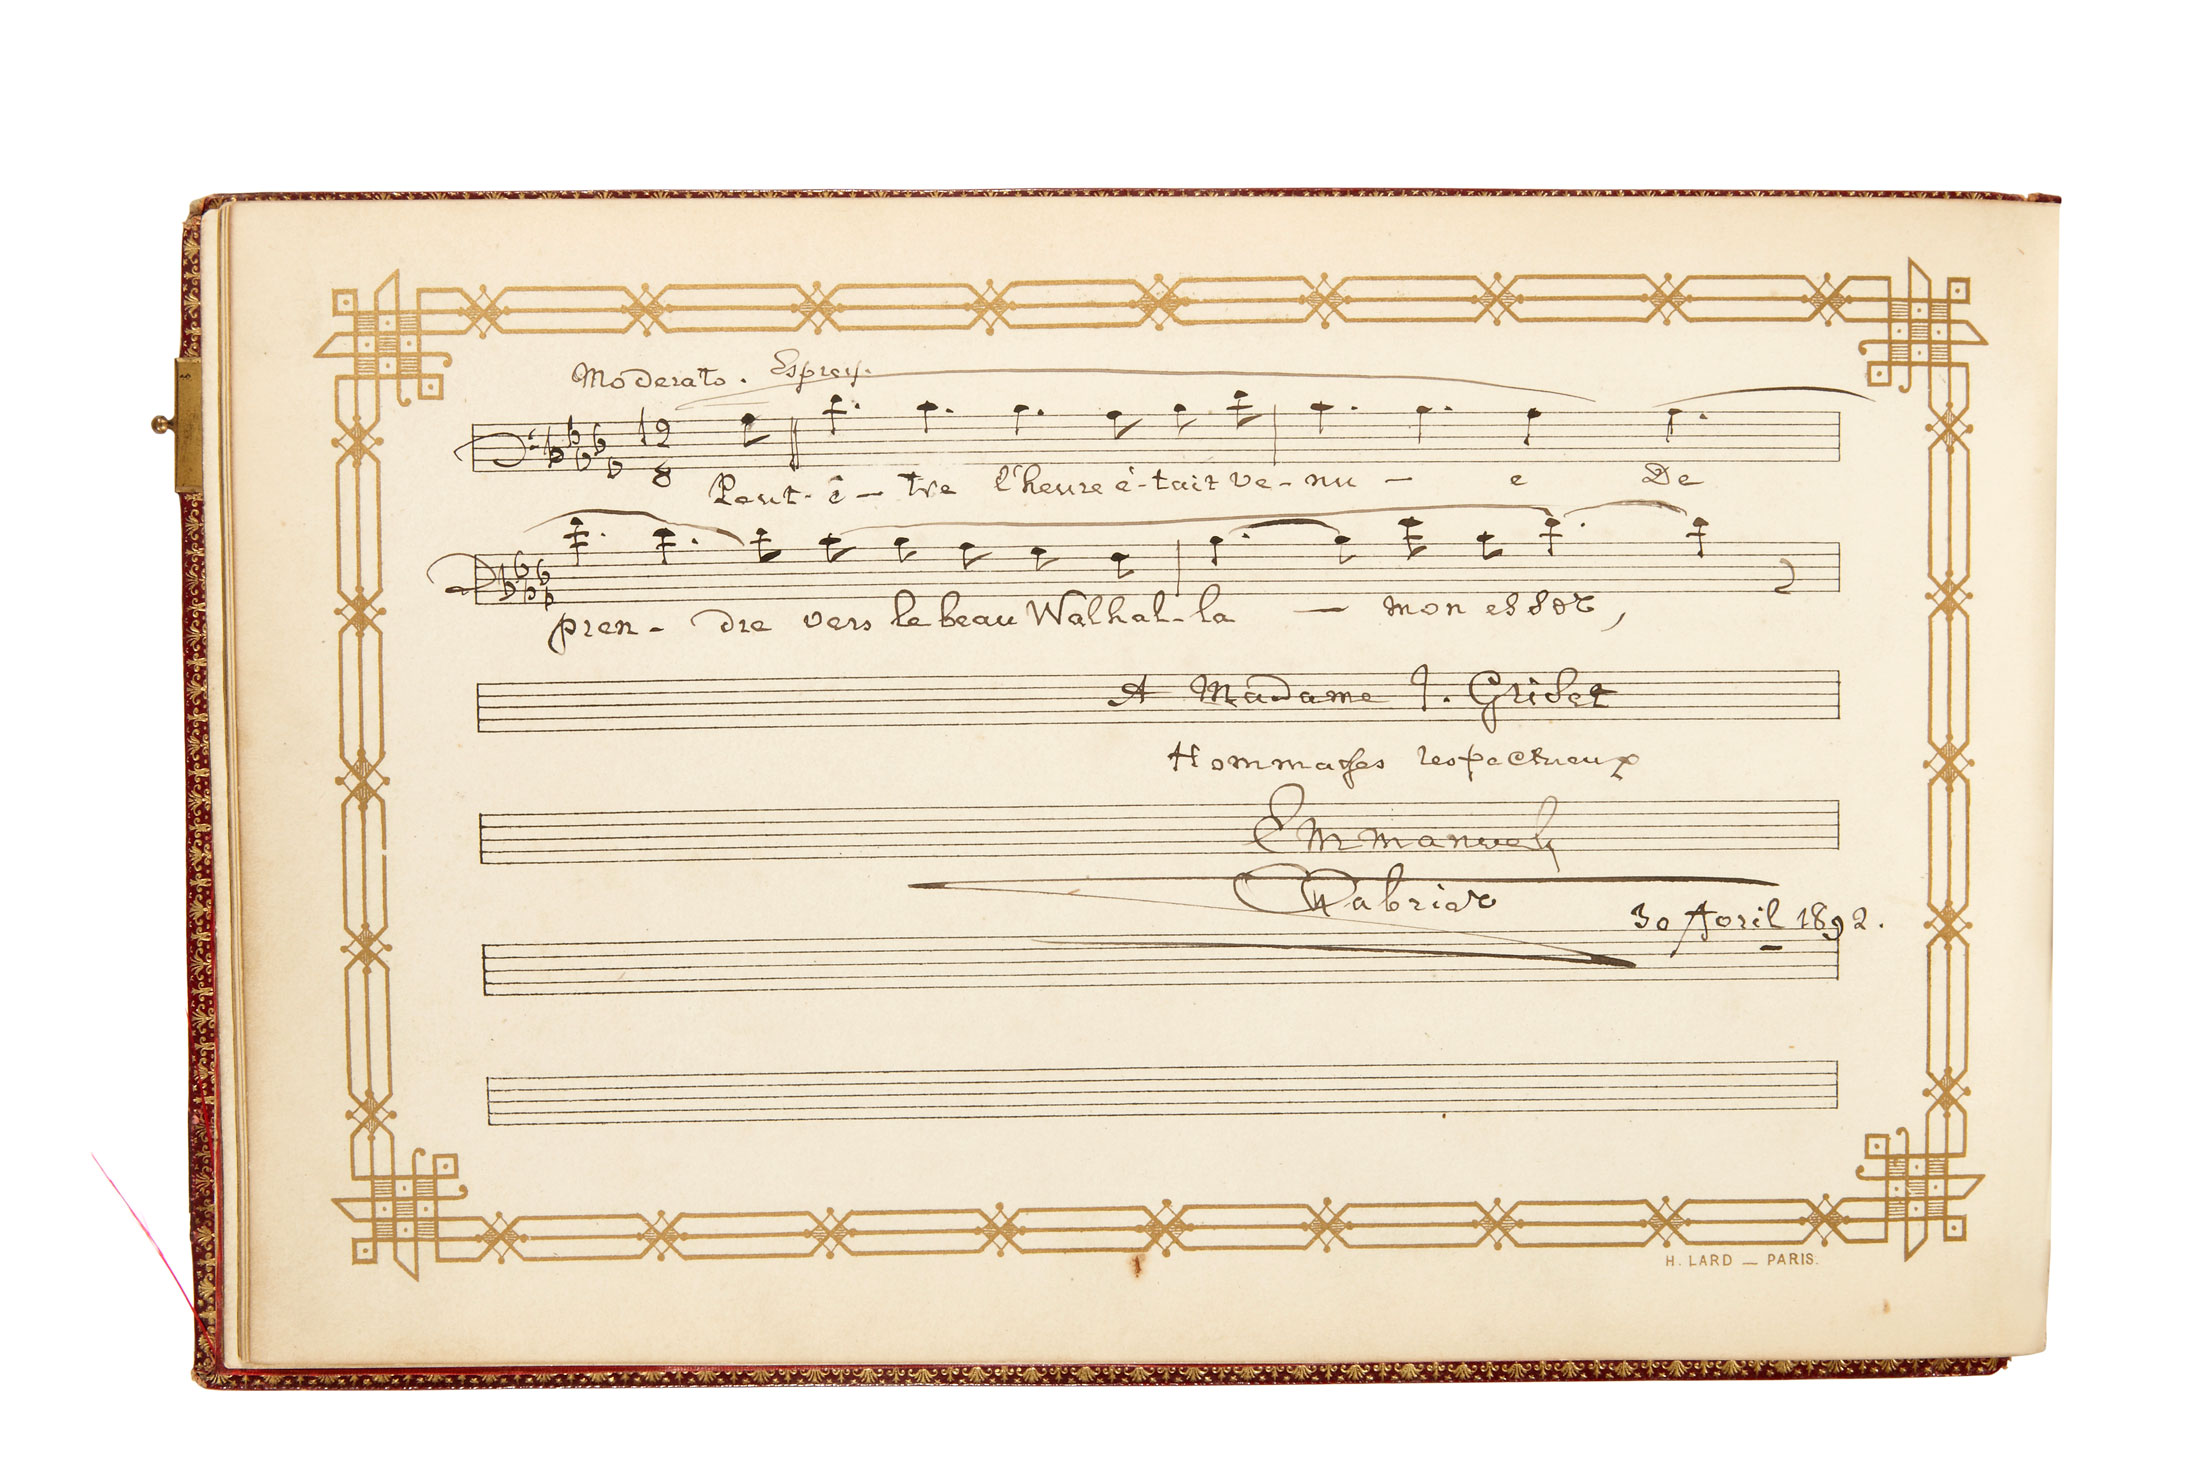 Moderato. Espress.
12
8
Peut-ê-tre l'heure é-tait ve-nu-e De
pren-dre vers le beau Walhal-la - mon essor,
A Madame J. Gridet
Hommages respectueux
Emmanuel
Chabrier
30 Avril 1892.
H. LARD — PARIS.